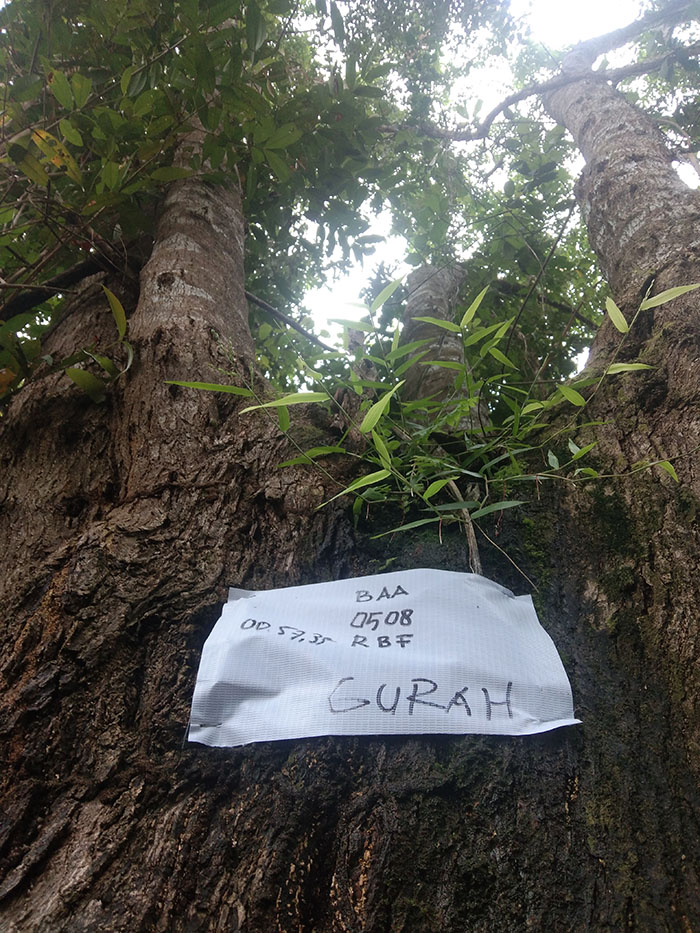 BAA
0508
OD.57,35 RBF
GURAH